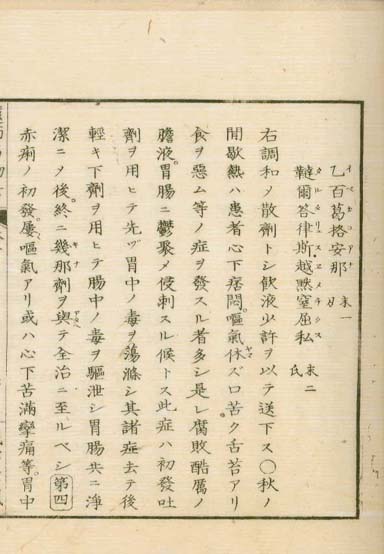 乙百葛格安那 末一
韃爾荅律斯越黙窒屈私 末二
右調和メ散劑トシ飲液少許ヲ以テ送下ス〇秋ノ
間歇熱ハ患者心下痞悶。嘔氣休ズ口苦ク舌苔アリ
食ヲ惡ム等ノ症ヲ發スル者多シ是レ腐敗酷厲ノ
膽液。胃腸ニ鬱聚メ侵刺スル候トス此症ハ初發吐
劑ヲ用ヒテ先ヅ胃中ノ毒ヲ蕩滌シ其諸症去テ後
輕キ下劑ヲ用ヒテ腸中ノ毒ヲ驅泄シ胃腸共ニ淨
潔ニメ後。終ニ幾那劑ヲ與テ全治ニ至ルベシ 第四
赤痢ノ初發。屢嘔氣アリ或ハ心下苦滿攣痛等。胃中